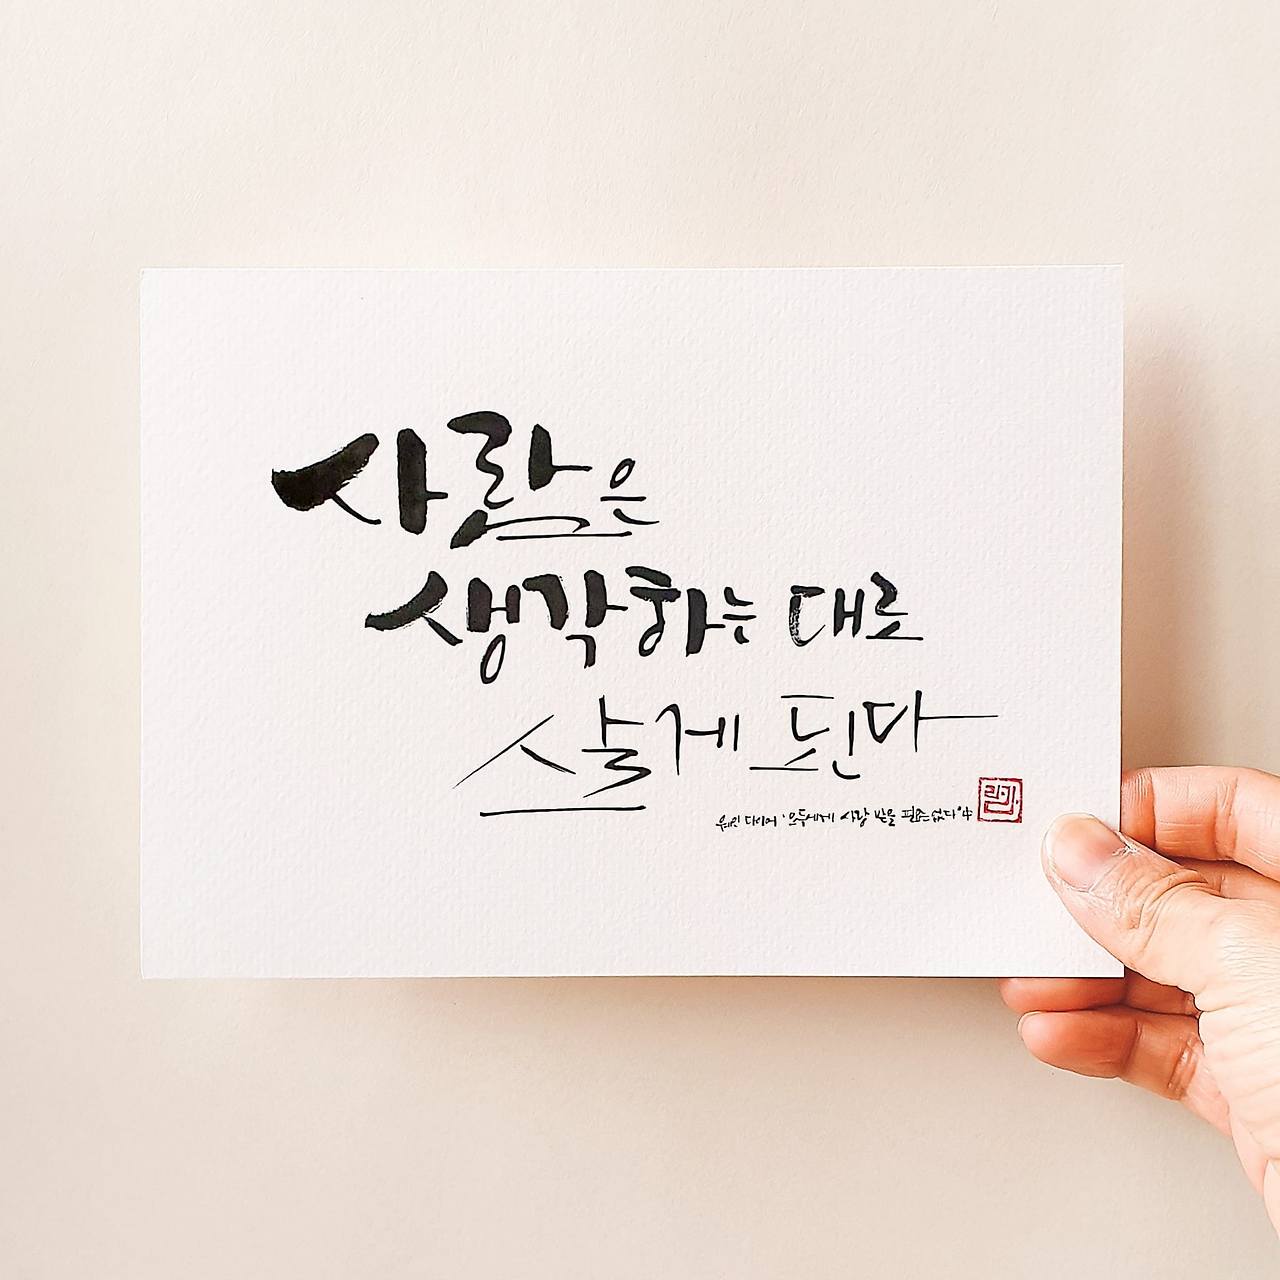 사람은
생각하는 대로
살게 된다
웨인 다이어 '모두에게 사랑 받을 필요는 없다' 中